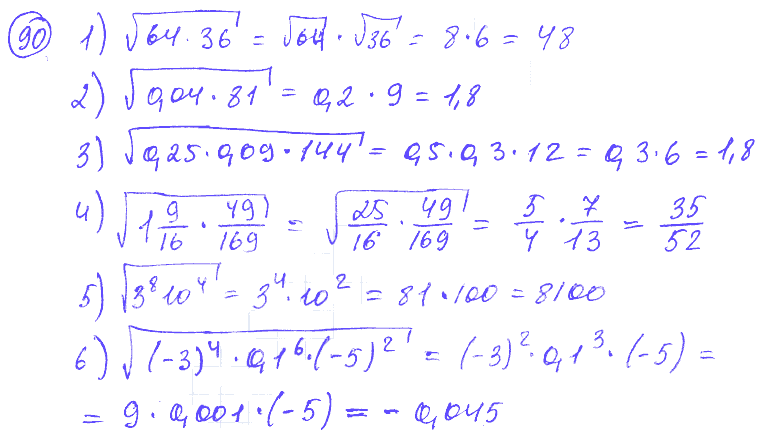 90 1) √(64·36) = √64 · √36 = 8·6 = 48
2) √(0,04·81) = 0,2 · 9 = 1,8
3) √(0,25·0,09·144) = 0,5·0,3·12 = 0,3·6 = 1,8
4) √(1 9/16 · 49/169) = √(25/16 · 49/169) = 5/4 · 7/13 = 35/52
5) √(3⁸10⁴) = 3⁴·10² = 81·100 = 8100
6) √((-3)⁴ · 0,1⁶·(-5)²) = (-3)²·0,1³·(-5) =
= 9·0,001·(-5) = - 0,045